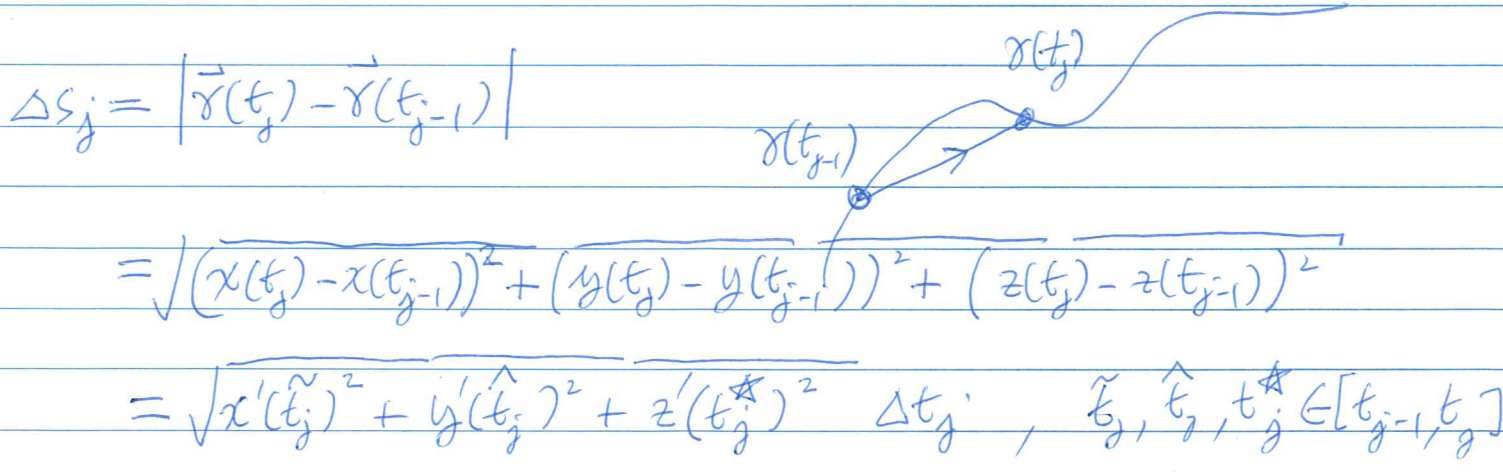 γ(t_j)
Δs_j = |\vec{γ}(t_j) - \vec{γ}(t_{j-1})|
γ(t_{j-1})
= √((x(t_j) - x(t_{j-1}))² + (y(t_j) - y(t_{j-1}))² + (z(t_j) - z(t_{j-1}))²)
= √(x'(\tilde{t}_j)² + y'(\hat{t}_j)² + z'(t_j^☆)²) Δt_j , \tilde{t}_j, \hat{t}_j, t_j^☆ ∈ [t_{j-1}, t_j]